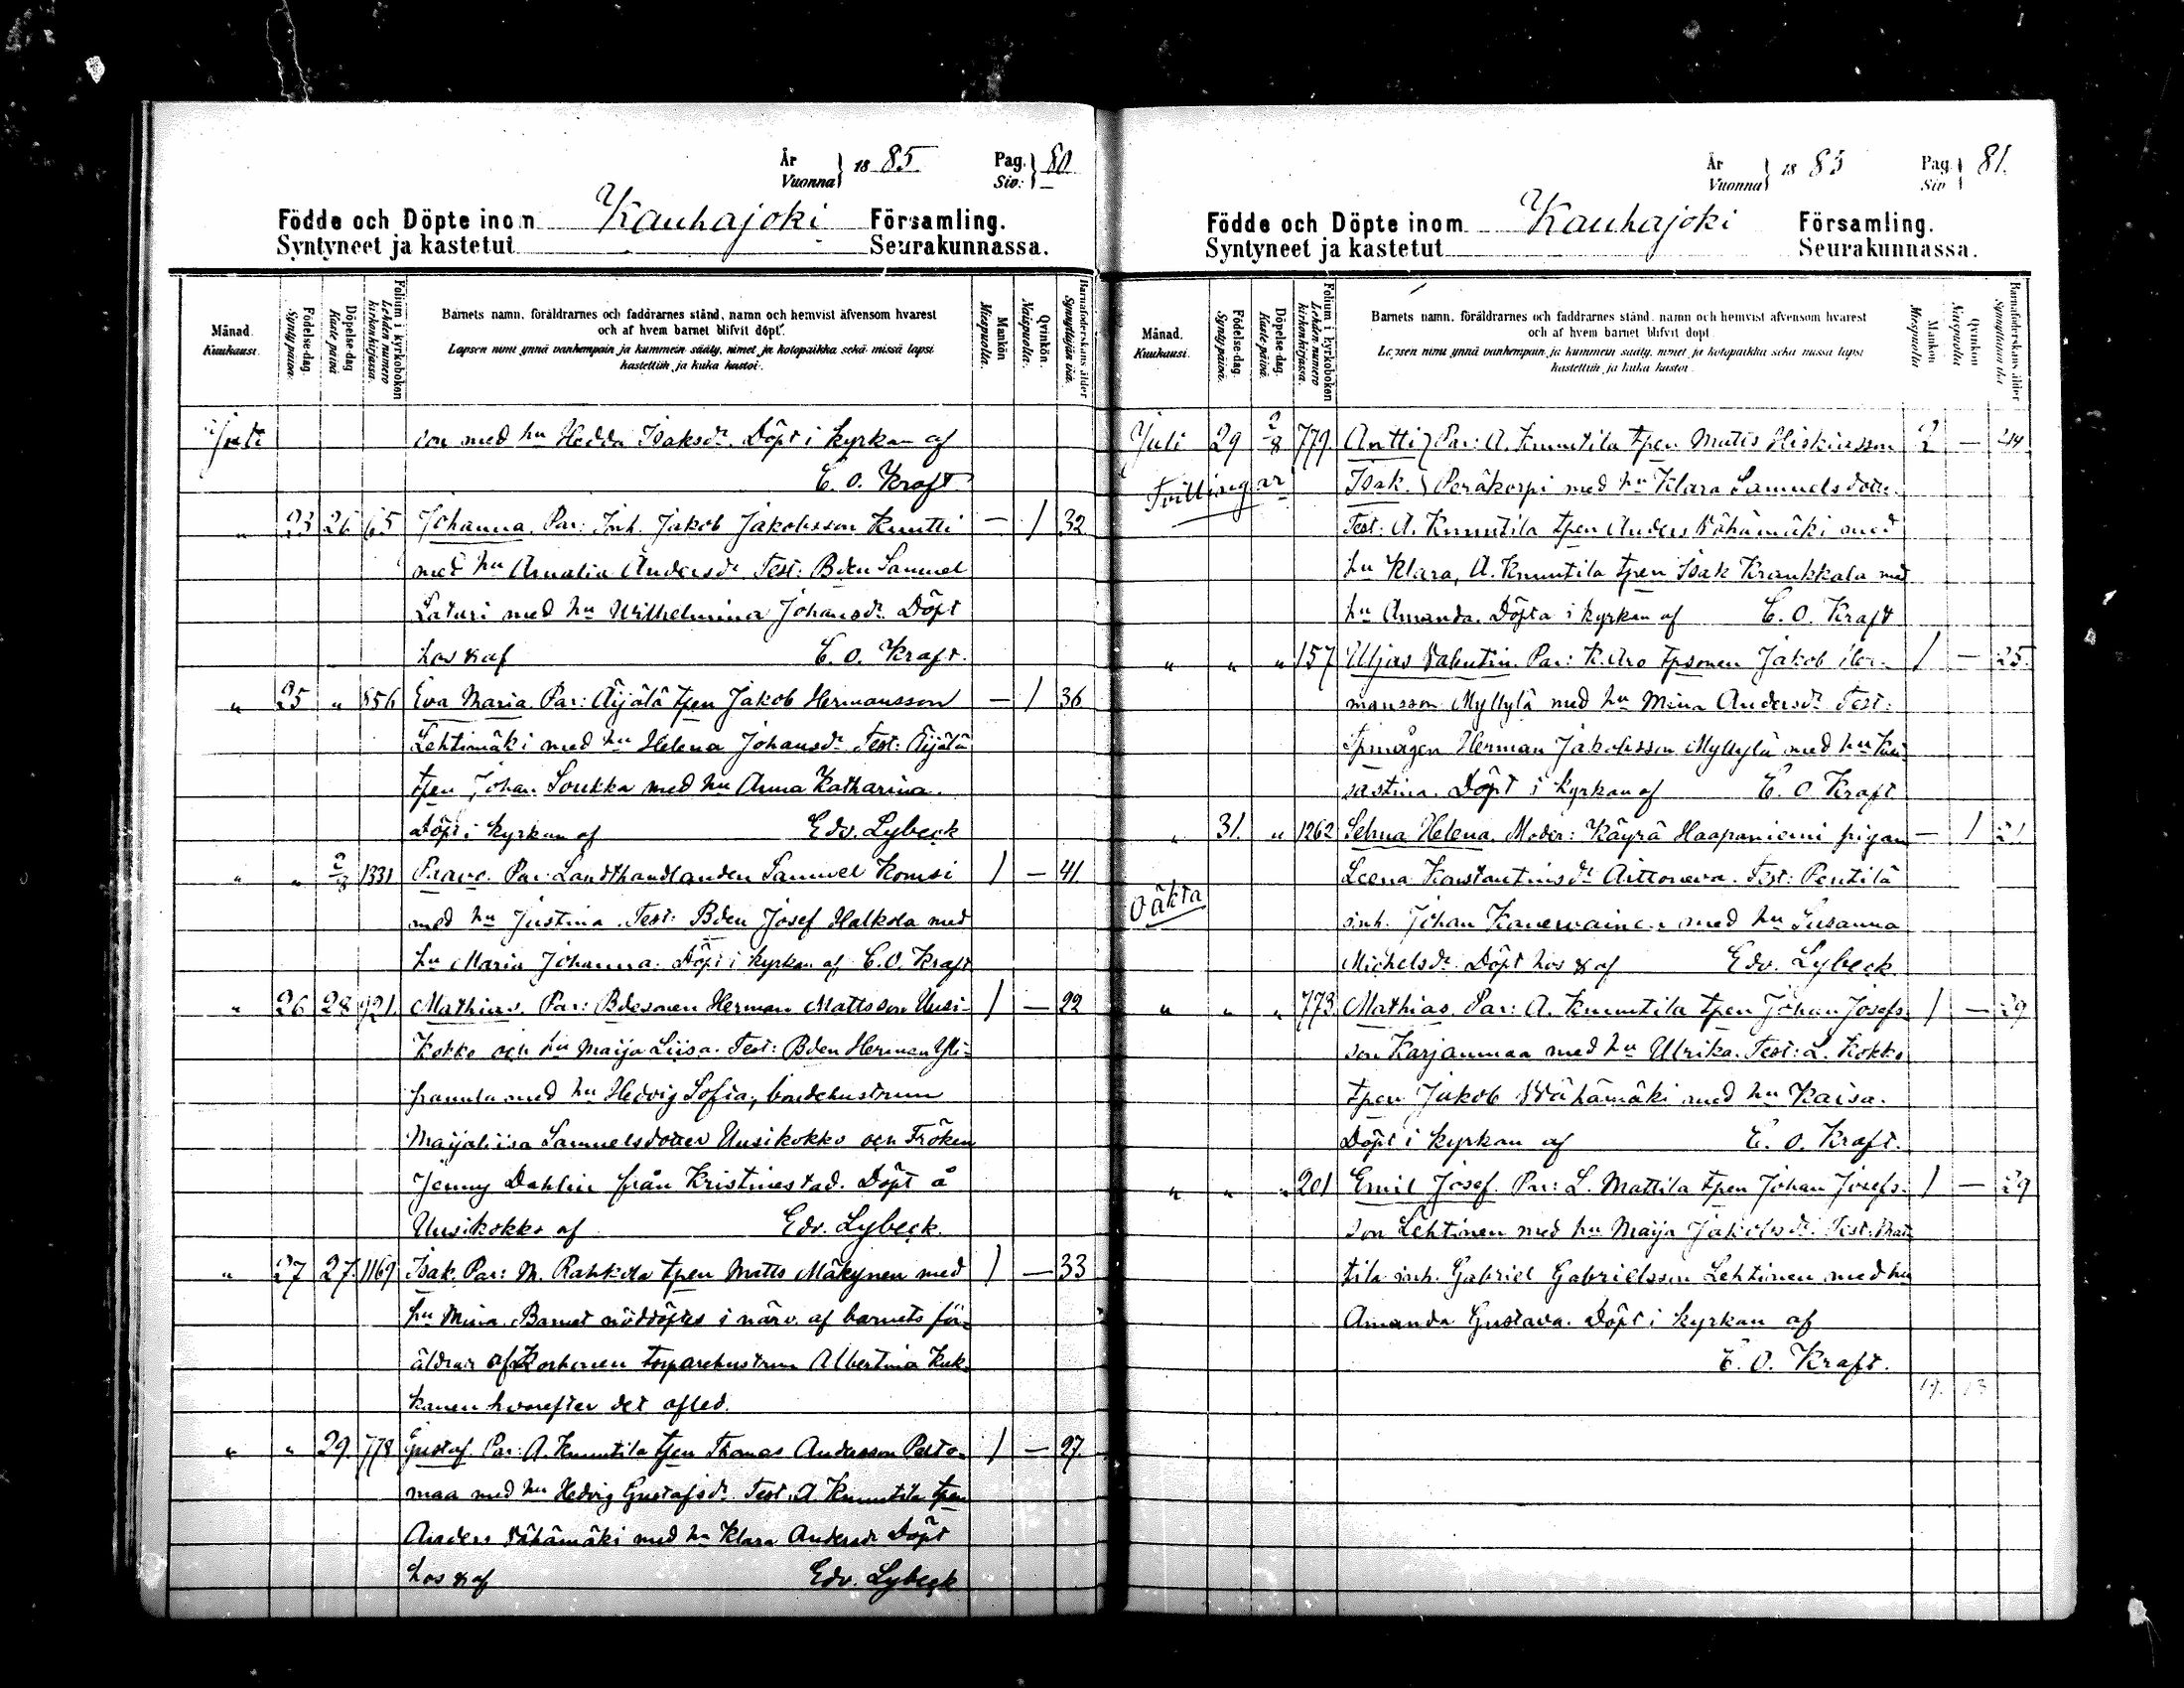 År
Vuonna } 1885 Pag.
Siv: } 80
Födde och Döpte inom Kauhajoki Församling.
Syntyneet ja kastetut Seurakunnassa.
Månad. Kuukausi.
Födelse-dag. Syntypäivä.
Döpelse-dag. Kastepäivä
Folium i kyrkoboken Lehden numero kirkonkirjassa.
Barnets namn, föräldrarnes och faddrarnes stånd, namn och hemvist äfvensom hvarest
och af hvem barnet blifvit döpt.
Lapsen nimi ynnä vanhempain ja kummein sääty, nimet ja kotopaikka sekä missä lapsi
kastettiin ja kuka kastoi.
Mankön Miespuolia.
Qvinkön. Naispuolia.
Barnaföderskans ålder Synnyttäjän ikä.
Juli son med hu Hedda Isaksdr. Döpt i kyrkan af
C. O. Kraft.
" 23 26 65 Johanna. Par: Inh. Jakob Jakobsson Knutti — 1 32
med hu Amalia Andersdr Test: Bden Samuel
Laturi med hu Wilhelmina Johansdr. Döpt
hos & af C. O. Kraft.
" 25 " 856 Eva Maria. Par: Äijälä tpen Jakob Hermansson — 1 36
Lehtimäki med hu Helena Johansdr Test: Äijälä
tpen Johan Soukka med hu Anna Katharina.
Döpt i kyrkan af Edv. Lybeck
" " 2/8 1331 Paavo. Par: Landthandlanden Samuel Komsi 1 — 41
med hu Justina. Test: Bden Josef Halkola med
hu Maria Johanna. Döpt i kyrkan af C. O. Kraft
" 26 28 921. Mathias. Par: Bdesonen Herman Mattsson Uusi- 1 — 22
kokko och hu Maija Liisa. Test: Bden Herman Yli-
pranula med hu Hedvig Sofia, bondehustrun
Maijaliisa Samuelsdotter Uusikokko och Fröken
Jenny Dahlin från Kristinestad. Döpt å
Uusikokko af Edv. Lybeck.
" 27 27. 1169 Isak. Par: M. Rahkola tpen Matts Mäkynen med 1 — 33
hu Mina. Barnet nöddöptes i närv. af barnets för-
äldrar af Korhonen torparehustrun Albertina Kuk-
kanen hvarefter det afled.
" " 29. 778 Gustaf. Par: A. Knuutila tpen Thomas Andersson Perto- 1 — 27.
maa med hu Hedvig Gustafsdr. Test. A. Knuutila tpen
Anders Vähämäki med hu Klara Andersdr Döpt
hos & af Edv. Lybeck
År
Vuonna } 1885 Pag.
Siv } 81.
Födde och Döpte inom Kauhajoki Församling.
Syntyneet ja kastetut Seurakunnassa.
Månad. Kuukausi.
Födelse-dag. Syntypäivä.
Döpelse-dag. Kastepäivä.
Folium i kyrkoboken Lehden numero kirkonkirjassa.
Barnets namn, föräldrarnes och faddrarnes stånd, namn och hemvist äfvensom hvarest
och af hvem barnet blifvit döpt.
Lapsen nimi ynnä vanhempain ja kummein sääty, nimet ja kotopaikka sekä missä lapsi
kastettiin ja kuka kastoi.
Mankön Miespuolia
Qvinkön Naispuolia
Barnaföderskans ålder Synnyttäjän ikä
Juli 29 2/8 779. Antti } Par: A. Knuutila tpen Matts Hiskiasson 2 —
Tvillingar Isak. } Peräkorpi med hu Klara Samuelsdotter.
Test: A. Knuutila tpen Anders Vähämäki med
hu Klara, A. Knuutila tpen Isak Kraukkala med
hu Amanda. Döpta i kyrkan af C. O. Kraft
" " " 157 Uljas Valentin. Par: K. Aro tpsonen Jakob Her- 1 — 25.
mansson Myllylä med hu Mina Andersdr Test:
Tpmågen Herman Jakobsson Myllylä med hu
sastina. Döpt i kyrkan af C. O. Kraft
" 31. " 1262 Selma Helena. Moder: Käyrä Haapaniemi pigan — 1 21
Leena Konstantinsdr Aittoneva. Test: Pentilä
Oäkta inh. Johan Kanervainen med hu Susanna
Michelsdr. Döpt hos & af Edv. Lybeck
" " " 773 Mathias. Par: A. Knuutila tpen Johan Josefs- 1 — 29
son Karjanmaa med hu Ulrika. Test: L. Kokko
tpen Jakob Wähämäki med hu Kaisa.
Döpt i kyrkan af C. O. Kraft.
" " " 201 Emil Josef. Par: L. Mattila tpen Johan Josefs- 1 — 29
son Lehtinen med hu Maija Jakobsdr. Test: Mat-
tila inh. Gabriel Gabrielsson Lehtinen med hu
Amanda Gustava. Döpt i kyrkan af
C. O. Kraft.